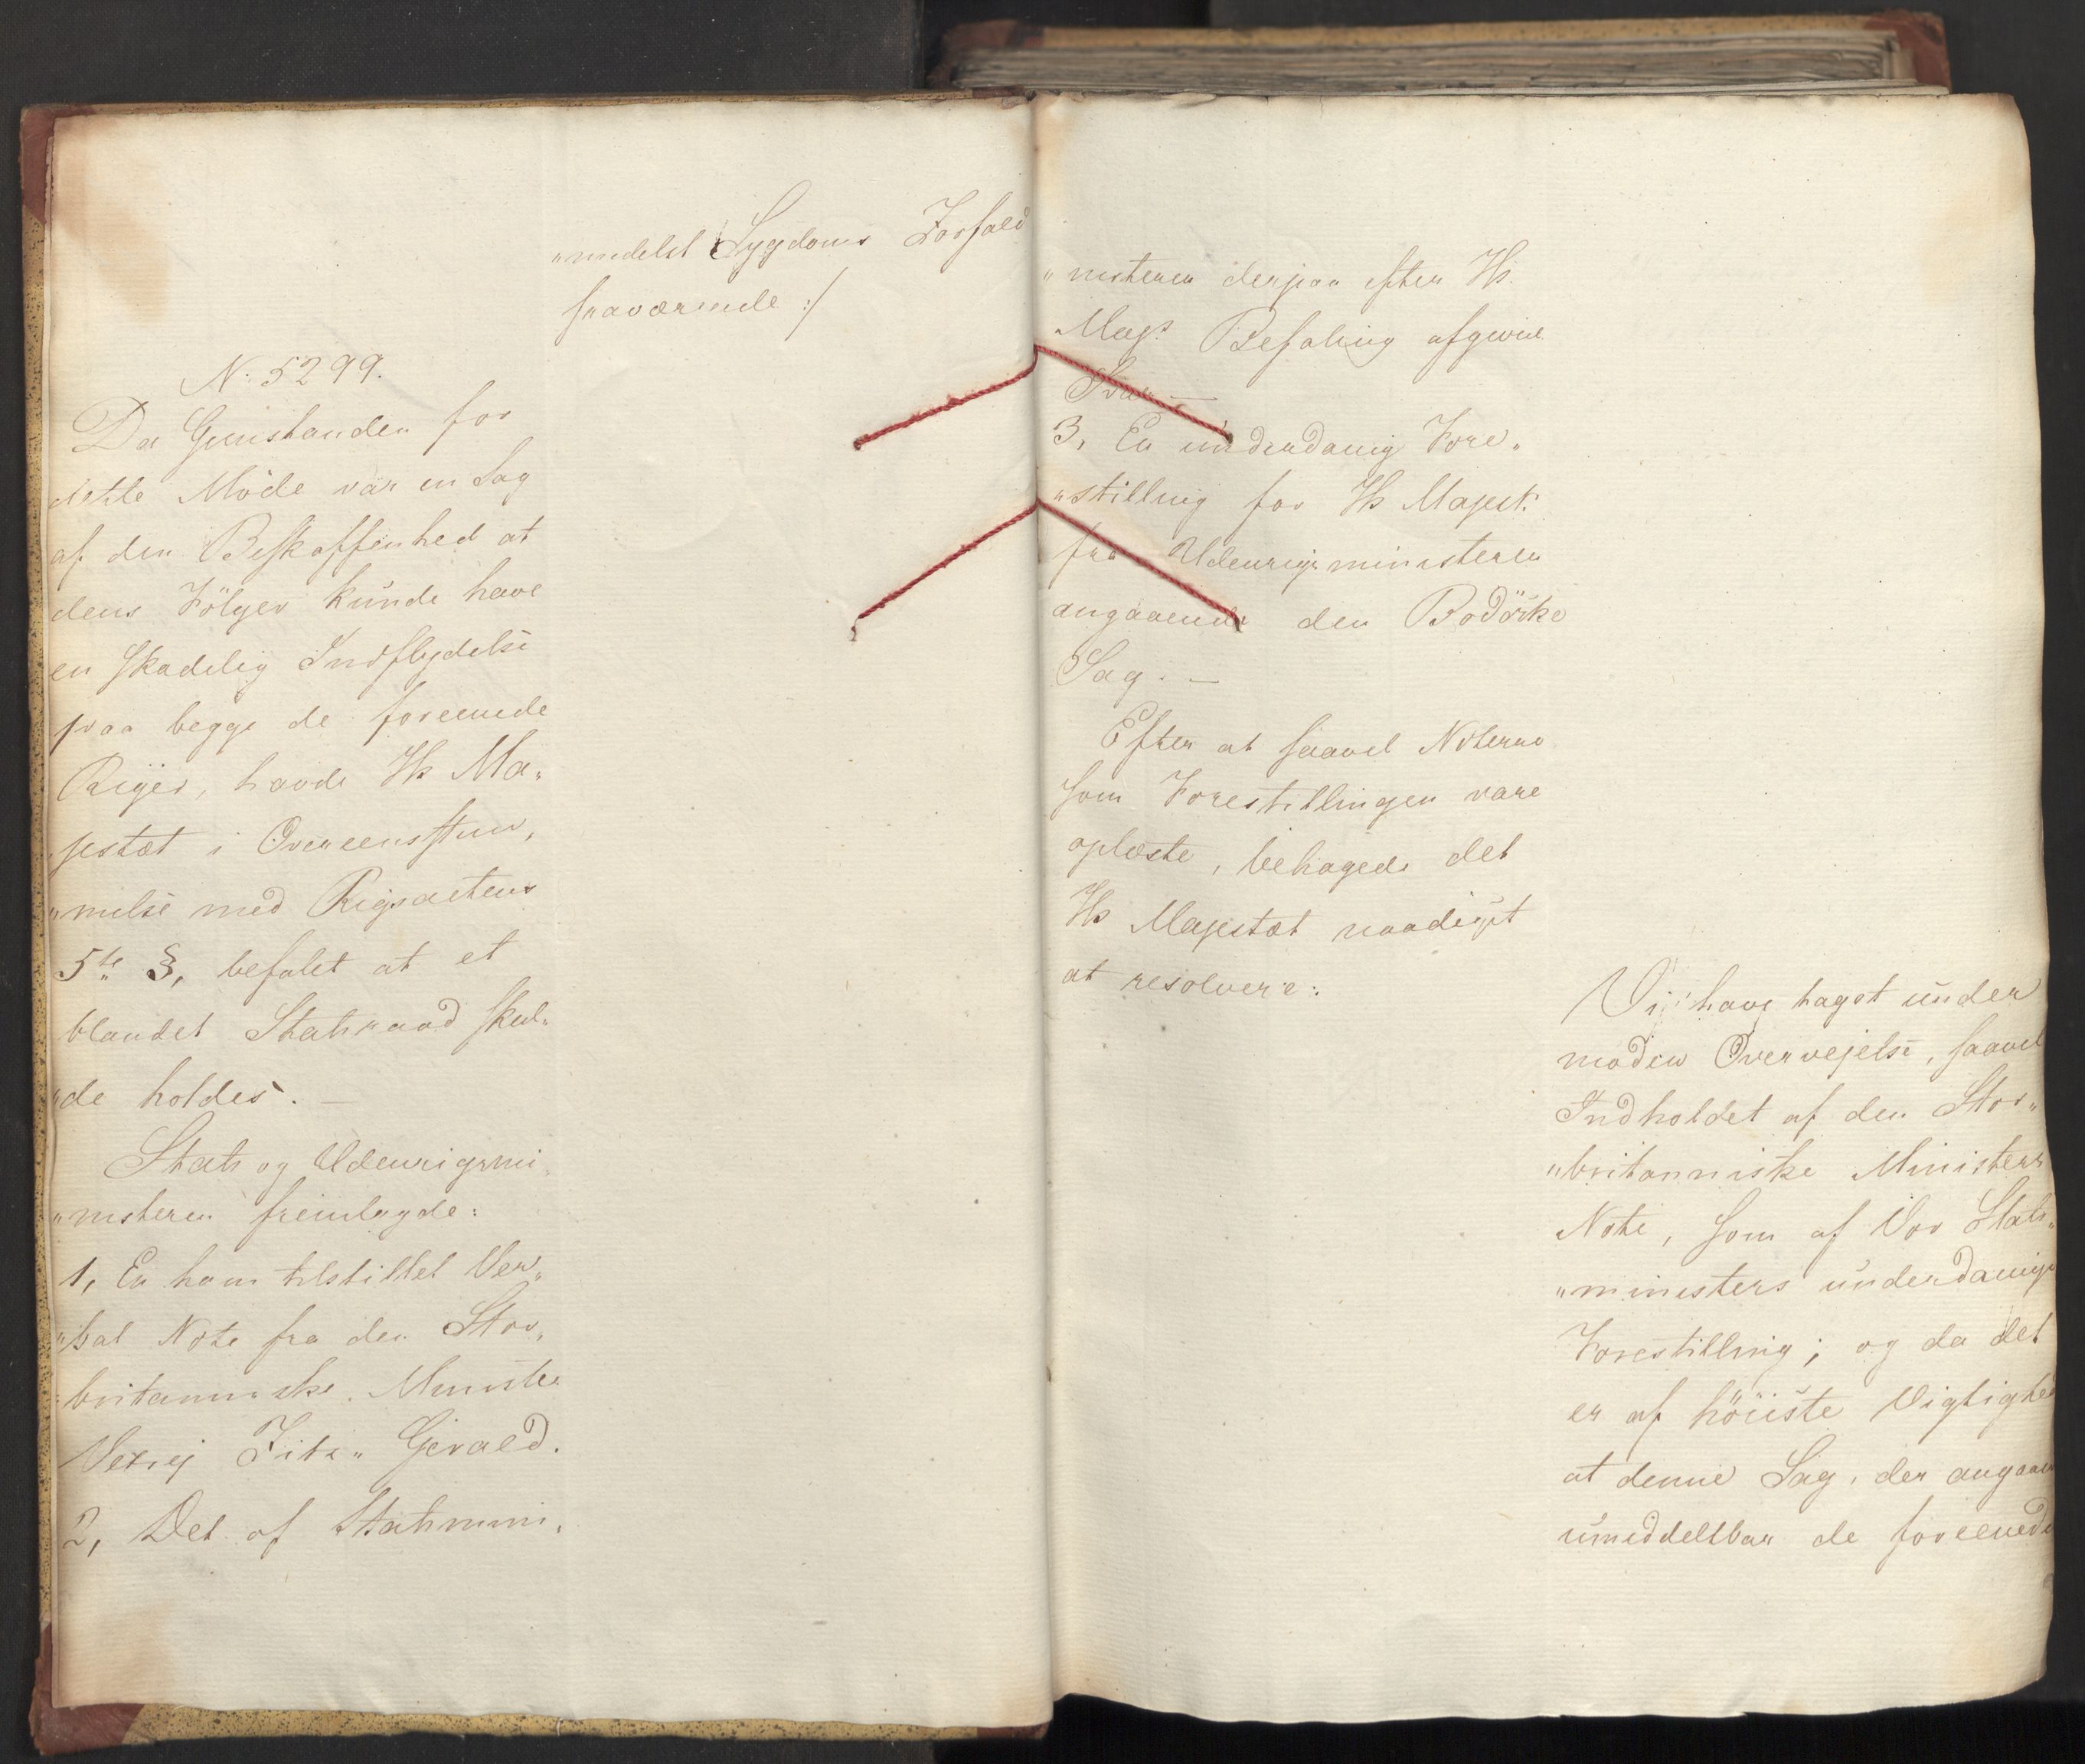 "middelst Sygdoms Forfald
fraværende :/
N. 5299.
Da Gjenstanden for
dette Möde var en Sag
af den Beskaffenhed at
dens Fölger kunde have
en skadelig Indflydelse
paa begge de foreenede
Riger, havde Hs Ma„
jestæt i Overeensstem„
„melse med Rigsactens
5te §, befalet at et
blandet Statsraad skul„
„de holdes. —
Stats og Udenrigsmi„
„nisteren fremlagde:
1, En ham tilstillet Ver„
„bal Note fra den Stor„
britanniske Minister
Vesey Fitz„ Gerald.
2, Det af Statsmini„
„nisteren derpaa efter Hs
Majs Befaling afgivne
Svar —
3, En underdanig Fore„
„stilling for Hs Majest:
fra Udenrigsministeren
angaaende den Bodöske
Sag. —
Efter at saavel Noterne
som Forestillingen vare
oplæste, behagede det
Hs Majestæt naadigst
at resolvere:
Vi have taget under
moden Overvejelse, saavel
Indholdet af den Stor„
„britanniske Ministers
Note, som af Vor Stats„
„ministers underdanige
Forestilling; og da det
er af höieste Vigtighed
at denne Sag, der angaaer
umiddelbar de foreenede